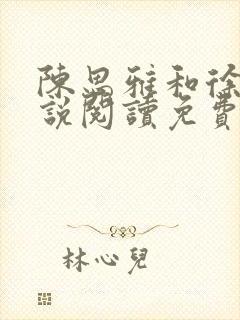 陳思雅和徐
說閱讀免費
林心兒